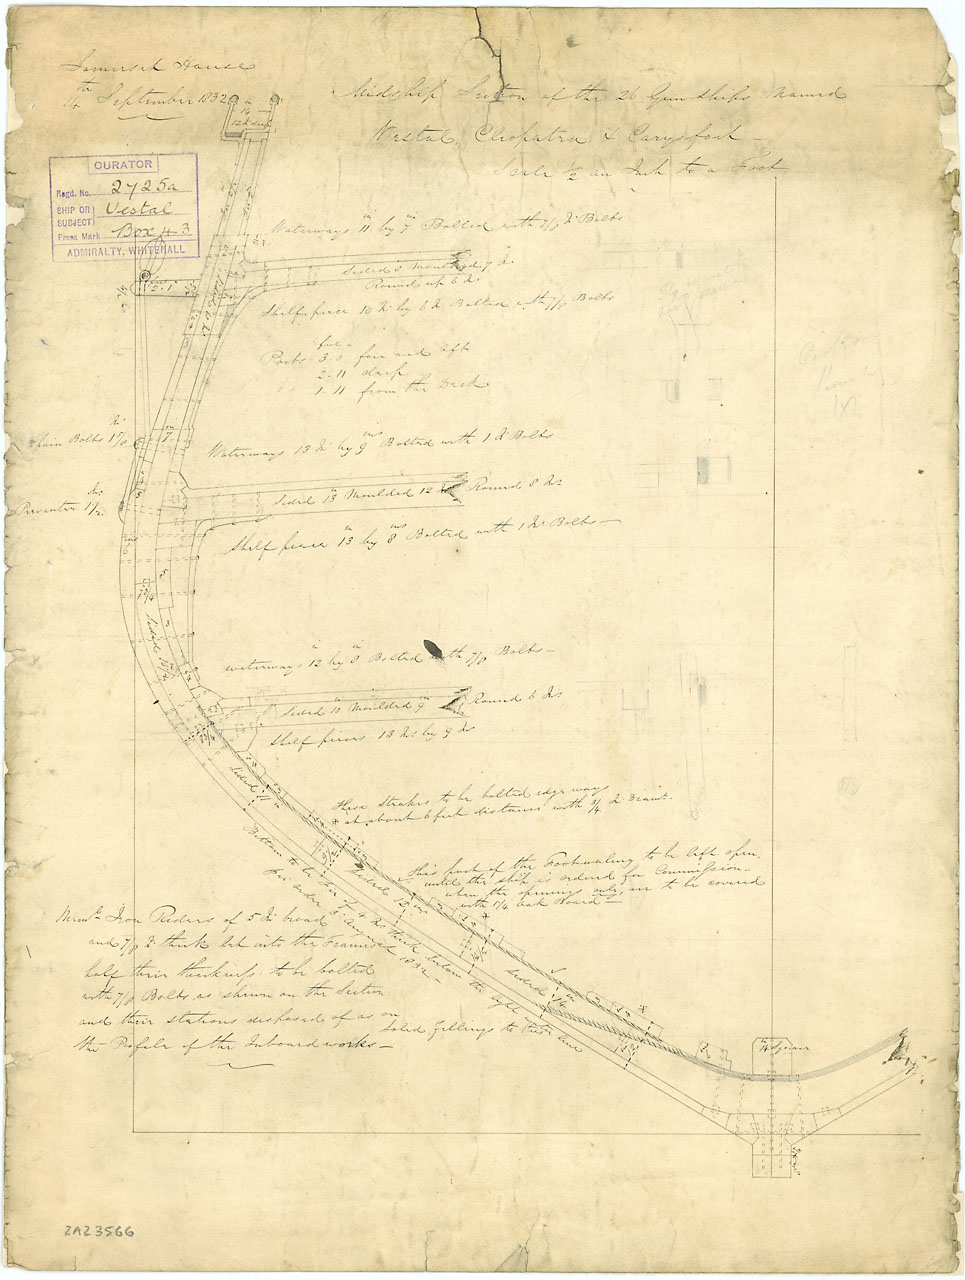 Somerset House
14th September 1832
Midship Section of the 26 Gun Ships Named
Vestal, Cleopatra & Carysfoot
Scale 1/2 an Inch to a Foot
CURATOR
Regd. No. 2725a
SHIP OR SUBJECT } Vestal
Press Mark Box 43
ADMIRALTY, WHITEHALL
12 In deep
Waterways 11 in by 7 in Bolted with 7/8 In Bolts
Sided 8 Moulded 7 Ins
Round up 6 Ins
Shelf piece 10 In by 6 In Bolted with 7/8 Bolts
Ports 3.0 fore and aft
2.11 deep
1.11 from the Deck
Chain Bolts 1 5/8
Waterways 13 In by 9 ins Bolted with 1 In Bolts
Preventer 1 1/2 Ins
Sided 13 in Moulded 12 Round 8 Ins
Shelf piece 13 in by 8 ins Bolted with 1 In Bolts
Sided 10 1/2 in
waterways 12 in by 8 in Bolted with 7/8 Bolts
Sided 10 in Moulded 9 in Round 6 Ins
Shelf pieces 13 Ins by 9 Ins
Sided 11 in
These Strakes to be bolted edgeways
* at about 6 feet distances with 3/4 In Diamr.
This part of the Footwaling to be left open,
until the ship is ordered for Commission
when the openings only are to be covered
with 1 1/4 oak Board
Bottom to be 4 In thick below the light water line
Sided 12 in
Sided
Memo. Iron Riders of 5 In broad
and 7/8 In thick let into the Frame
half their thickness to be bolted
with 7/8 Bolts as shewn on the Section
and their stations disposed of as on
the Profile of the Inboard works
Solid fillings to this
14 Square
ZAZ3566